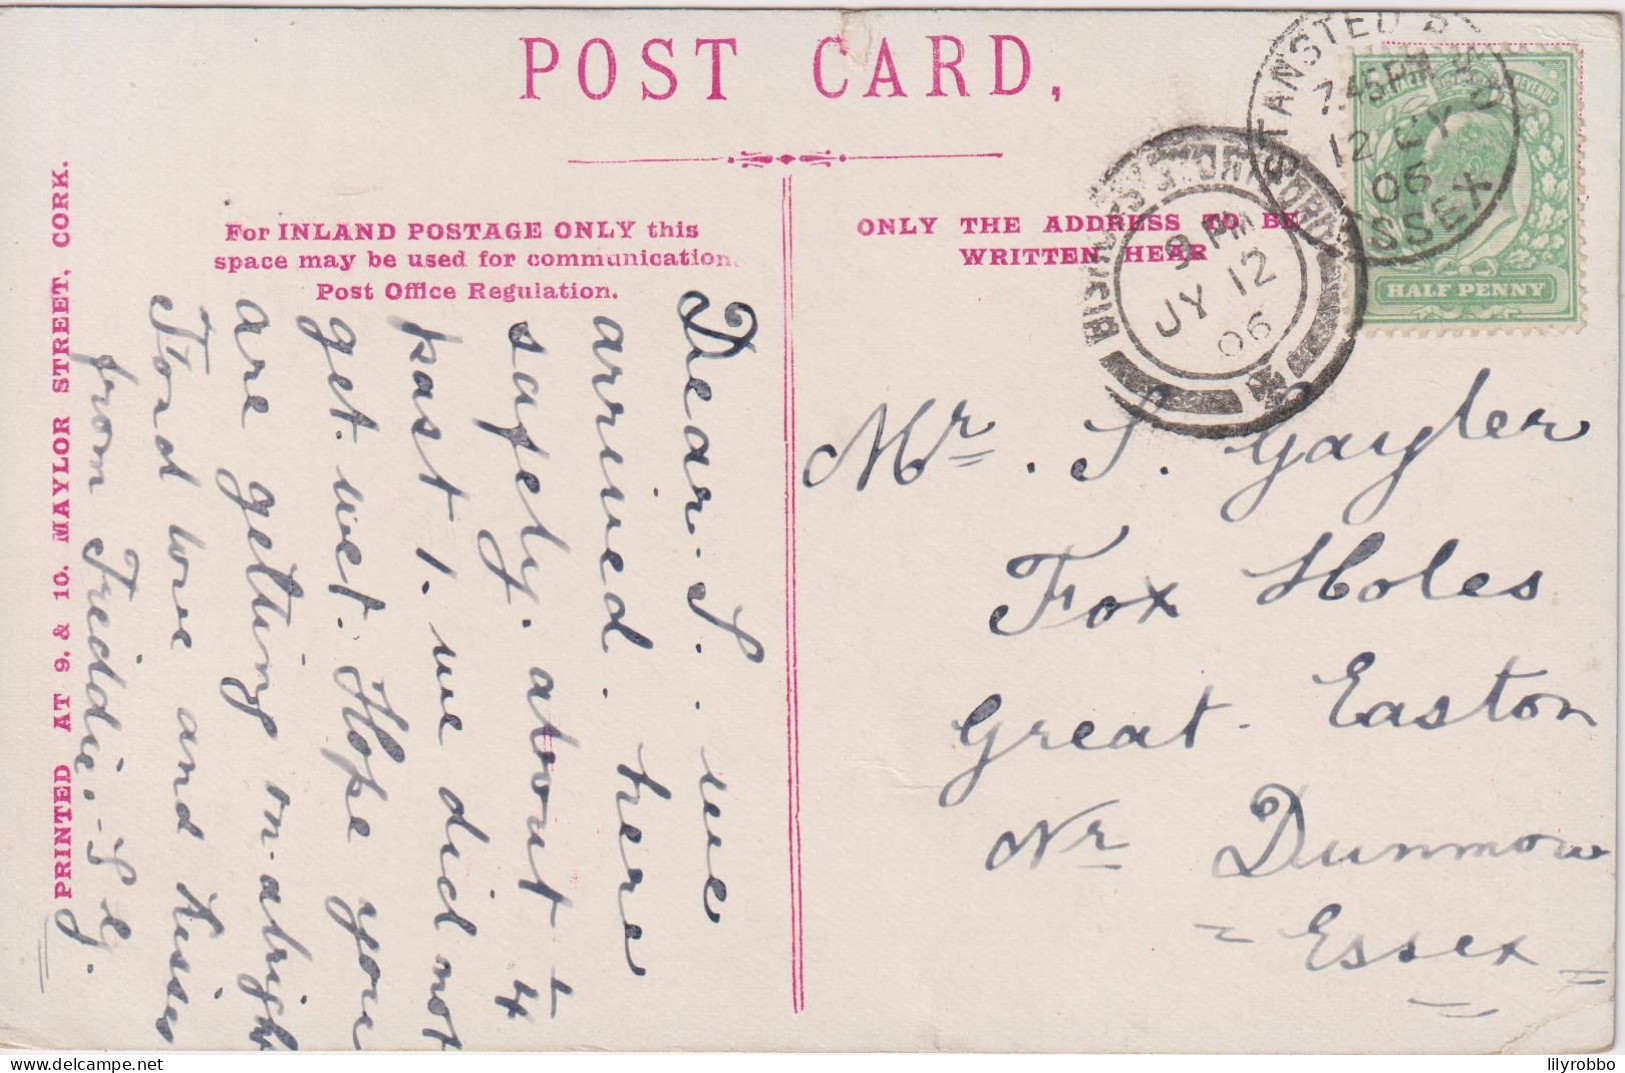 POST CARD,
For INLAND POSTAGE ONLY this
space may be used for communication.
Post Office Regulation.
ONLY THE ADDRESS TO BE
WRITTEN HEAR
PRINTED AT 9. & 10. MAYLOR STREET, CORK.
Dear. S. we
arrived. here
safely. about 1/4
past 1. we did not
get. wet. Hope you
are getting on. alright
Fond love and kisses
from Freddie. S. G.
Mr. S. Gayler
Fox Holes
Great. Easton
Nr Dunmow
Essex
HALF PENNY
7.45PM
12 JY
06
ESSEX
9 PM
JY 12
06
lilyrobbo